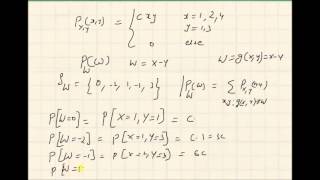 P_{X,Y}(x,y) = { C x y x = 1, 2, 4
y = 1, 3
0 else
P_W(w) W = X-Y W = g(x,y) = x-y
S_W = { 0, -2, 1, -1, 3 } P_W(w) = Σ P_{X,Y}(x,y)
x,y: g(x,y) = w
P[W=0] = P[X=1, Y=1] = C
P[W=-2] = P[X=1, Y=3] = C·3 = 3C
P[W=-1] = P[X=2, Y=3] = 6C
P[W=